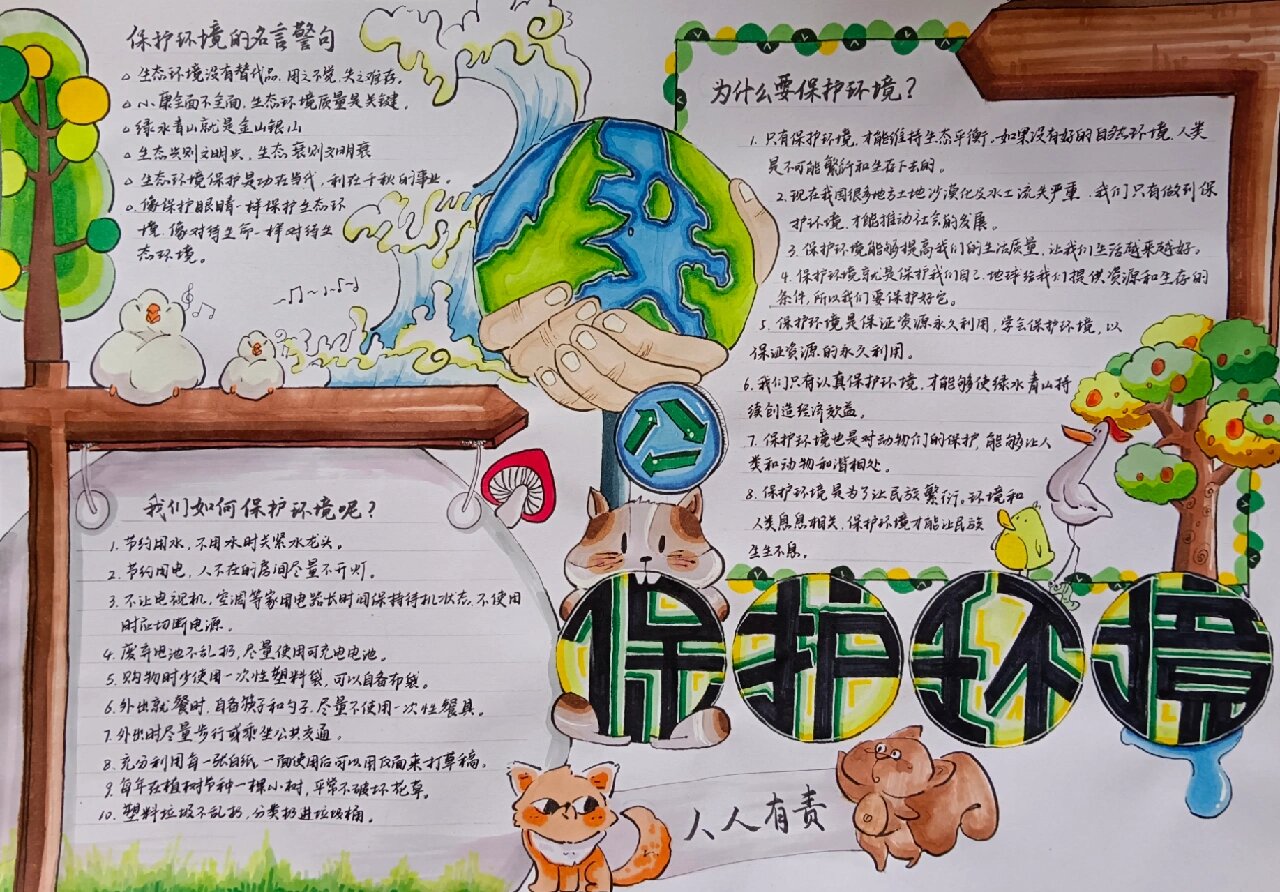 保护环境的名言警句
生态环境没有替代品,用之不觉,失之难存。
小康全面不全面,生态环境质量是关键。
绿水青山就是金山银山
生态兴则文明兴,生态衰则文明衰
生态环境保护是功在当代、利在千秋的事业。
像保护眼睛一样保护生态环
境,像对待生命一样对待生
态环境。
为什么要保护环境?
1. 只有保护环境,才能维持生态平衡。如果没有好的自然环境,人类
是不可能繁衍和生存下去的。
2. 现在我国很多地方土地沙漠化及水土流失严重,我们只有做到保
护环境,才能推动社会的发展。
3. 保护环境能够提高我们的生活质量,让我们生活越来越好。
4. 保护环境就是保护我们自己,地球给我们提供资源和生存的
条件,所以我们要保护好它。
5. 保护环境是保证资源永久利用,学会保护环境,以
保证资源的永久利用。
6. 我们只有认真保护环境,才能够使绿水青山持
续创造经济效益。
7. 保护环境也是对动物们的保护,能够让人
类和动物和谐相处。
8. 保护环境是为了让民族繁衍,环境和
人类息息相关,保护环境才能让民族
生生不息。
我们如何保护环境呢?
1. 节约用水,不用水时关紧水龙头。
2. 节约用电,人不在的房间尽量不开灯。
3. 不让电视机,空调等家用电器长时间保持待机状态,不使用
时应切断电源。
4. 废弃电池不乱扔,尽量使用可充电电池。
5. 购物时少使用一次性塑料袋,可以自备布袋。
6. 外出就餐时,自备筷子和勺子,尽量不使用一次性餐具。
7. 外出时尽量步行或乘坐公共交通。
8. 充分利用每一张白纸,一面使用后可以用反面来打草稿。
9. 每年在植树节种一棵小树,平常不破坏花草。
10. 塑料垃圾不乱扔,分类扔进垃圾桶。
保护环境
人人有责